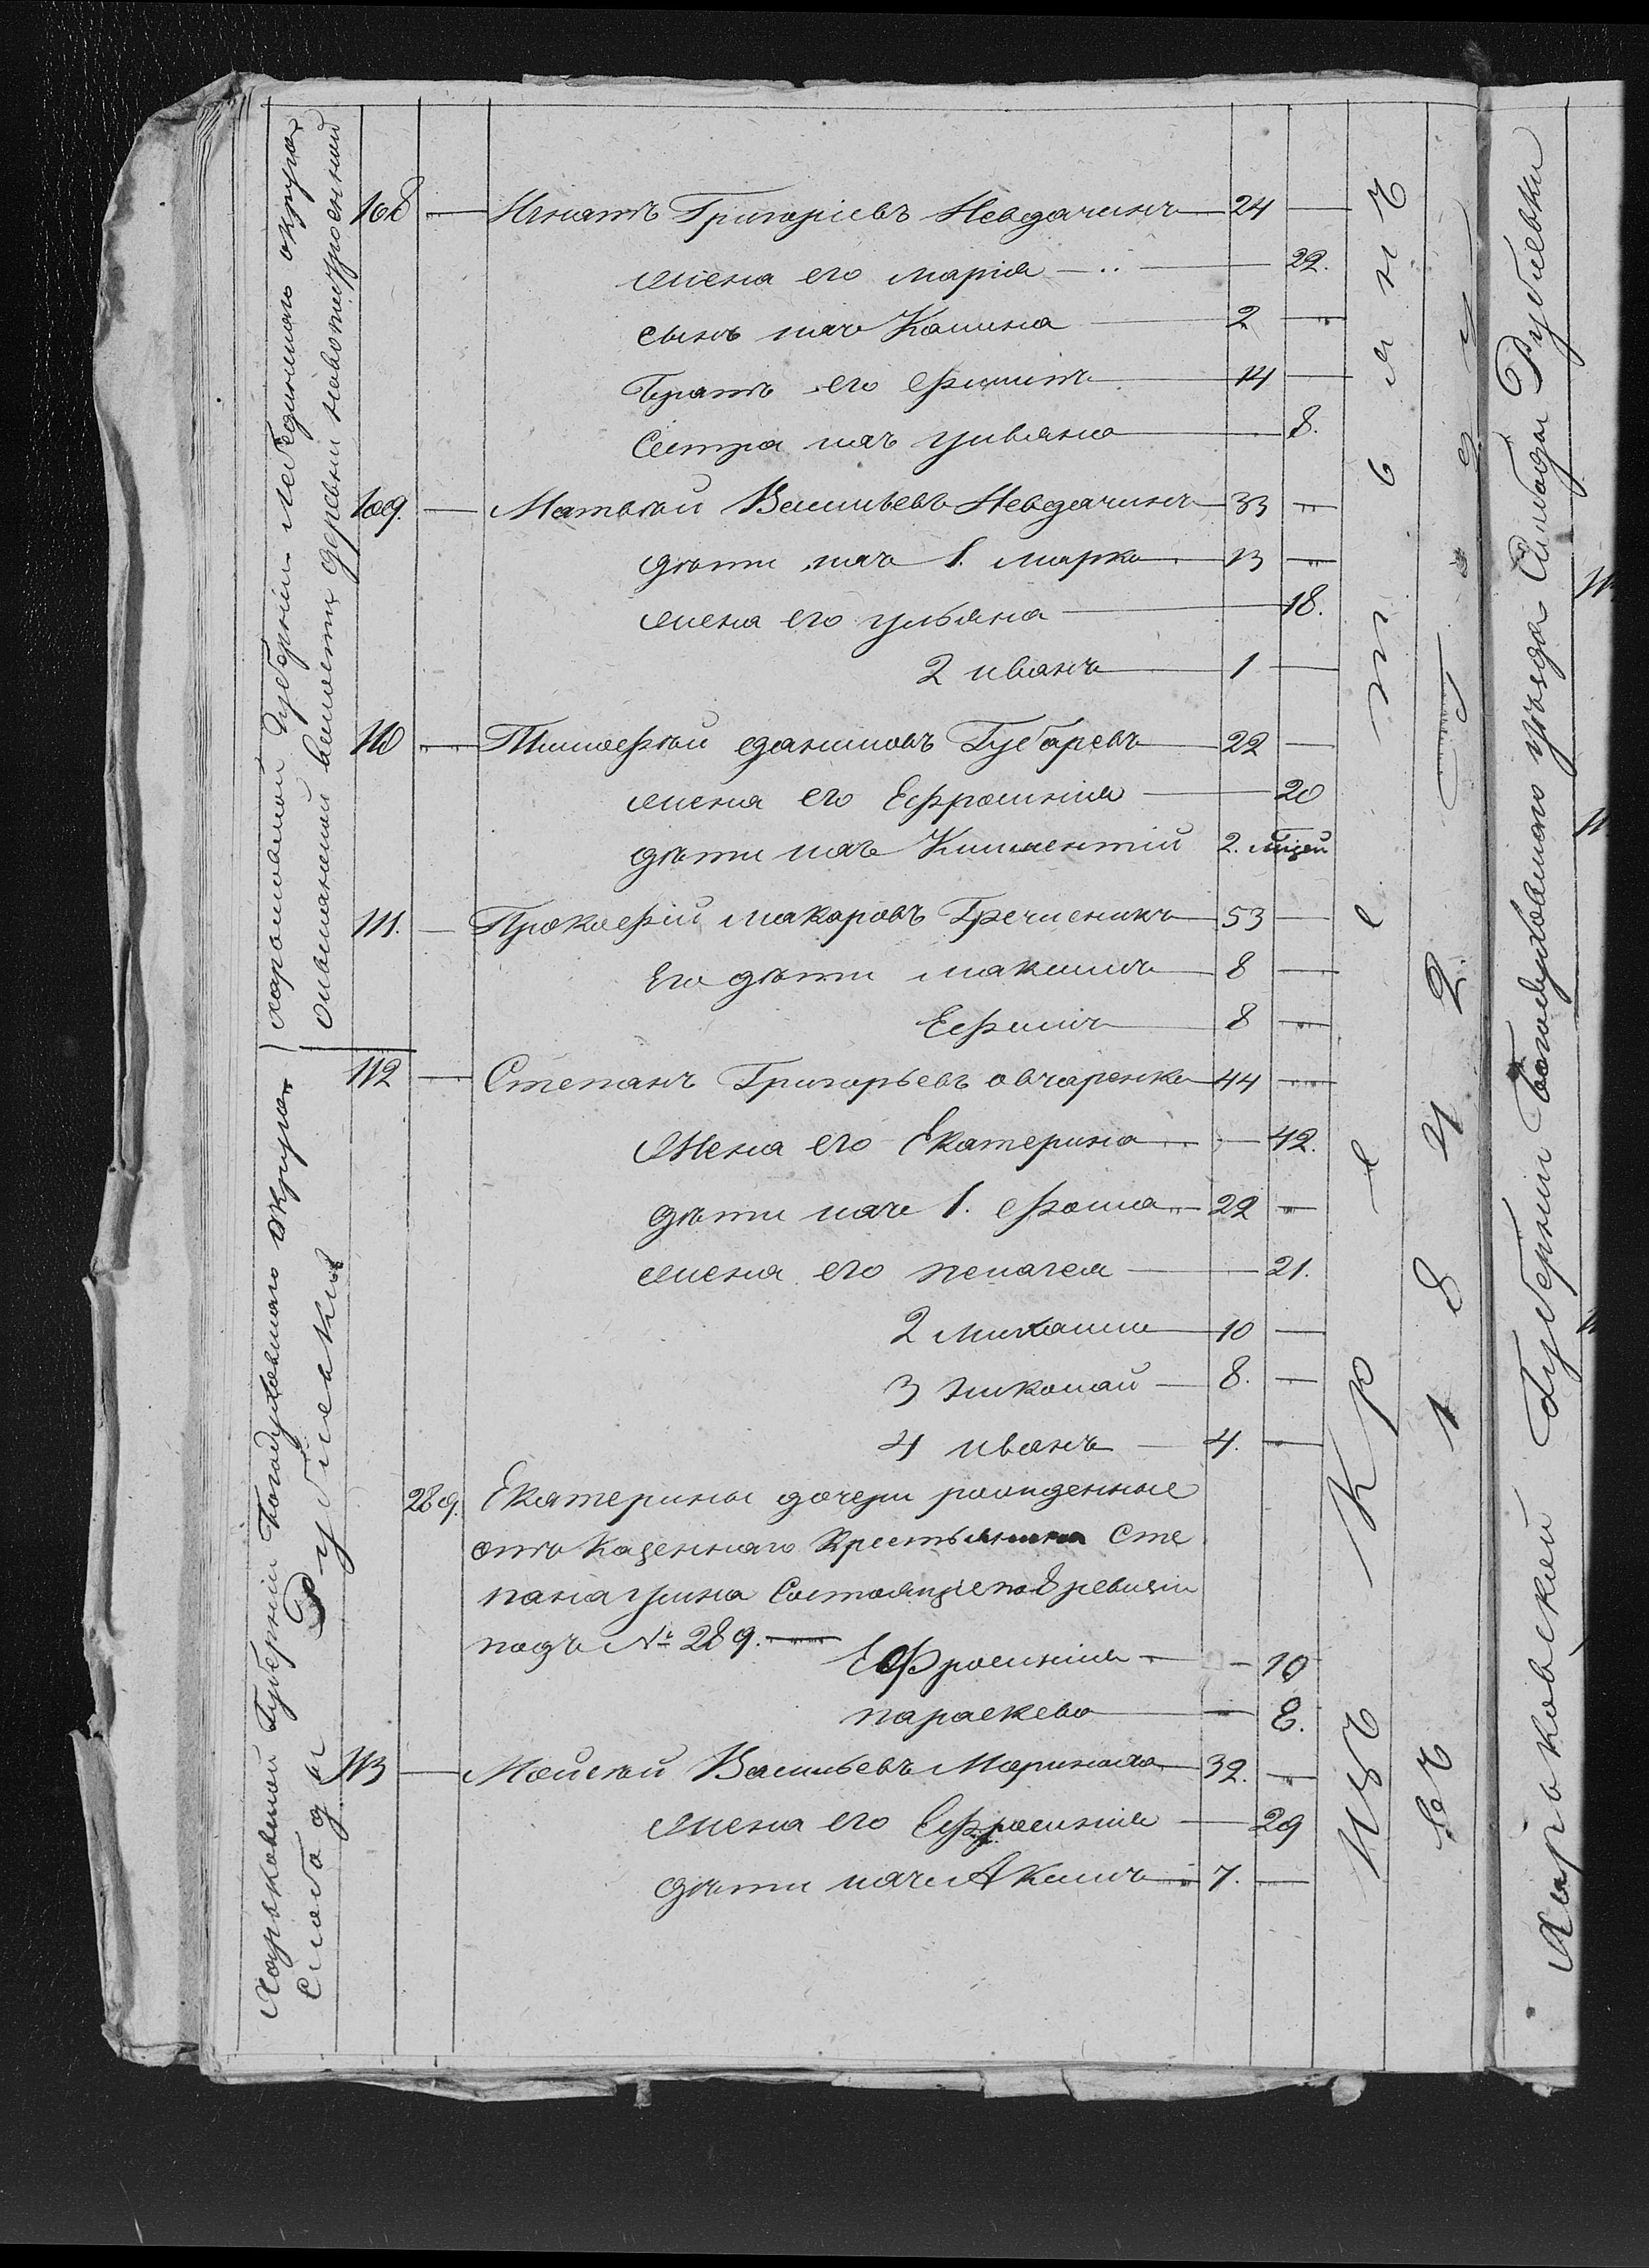 Харьковской Губерніи Лебединскаго округа
ольшанской волости деревни новопостроенной
Харьковской Губерніи Богодуховскаго округа
Слободы Рублевки
108 Игнатъ Григоріевъ Невдачинъ 24
жена его марія 22.
сынъ ихъ Калина 2
Братъ его филипъ 14
Сестра ихъ ульяна 8.
109. Матвѣй Васильевъ Невдачинъ 33
дѣти ихъ 1. марко 13
жена его ульяна 18.
2 иванъ 1
110 Тимофѣй даниловъ Губаревъ 22
жена его Ефросинія 20
дѣти ихъ Климентій 2. мѣсяц
111. Прокофій макаровъ Гречишкинъ 53
Его дѣти максимъ 8
Ефимъ 8
112 Степанъ Григорьевъ овчаренко 44
Жена его Екатерина 42.
дѣти ихъ 1. фома 22
жена его пелагея 21.
2 михаилъ 10
3 николай 8.
4 иванъ 4.
289. Екатерины дочери рожденные
отъ казеннаго крестьянина Сте
пана Состоящіе по 8 ревизіи
подъ № 289.
Ефросинія 10
параскева 8.
113 Мойсѣй Васильевъ 32.
жена его Ефросинія 29
дѣти ихъ Акимъ 7.
Изъ Крестьянъ
въ 1842 году
Харьковской Губерніи Богодуховскаго уѣзда Слободы Рублевки